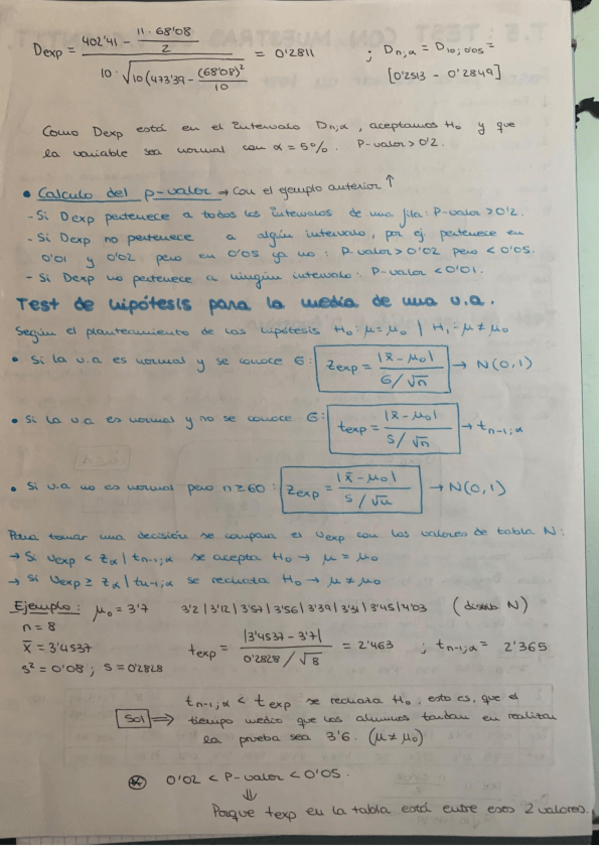 Dexp = (402'41 - (11 · 68'08)/2) / (10 · √(10(473'39 - (68'08)²/10))) = 0'2811 ; Dn;α = D10;0'05 = [0'2513 - 0'2849]
Como Dexp está en el intervalo Dn;α, aceptamos H₀ y que
la variable sea normal con α = 5%. P-valor > 0'2.
• Calculo del p-valor → Con el ejemplo anterior ↑
- Si Dexp pertenece a todos los intervalos de una fila: P-valor > 0'2.
- Si Dexp no pertenece a algún intervalo, por ej. pertenece en
0'01 y 0'02 pero en 0'05 ya no: P-valor > 0'02 pero < 0'05.
- Si Dexp no pertenece a ningún intervalo: P-valor < 0'01.
Test de hipótesis para la media de una v.a.
Según el planteamiento de las hipótesis H₀: μ = μ₀ | H₁ = μ ≠ μ₀
• Si la v.a es normal y se conoce σ: Zexp = |x̄ - μ₀| / (σ/√n) → N(0,1)
• Si la v.a es normal y no se conoce σ: texp = |x̄ - μ₀| / (s/√n) → tn-1;α
• Si v.a no es normal pero n ≥ 60: Zexp = |x̄ - μ₀| / (s/√n) → N(0,1)
Para tomar una decisión se compara el Uexp con los valores de tabla N:
→ Si Uexp < Zα | tn-1;α se acepta H₀ → μ = μ₀
→ Si Uexp ≥ Zα | tn-1;α se rechaza H₀ → μ ≠ μ₀
Ejemplo: μ₀ = 3'7 3'2 | 3'12 | 3'57 | 3'56 | 3'39 | 3'31 | 3'45 | 4'03 (distrib N)
n = 8
x̄ = 3'4537 texp = |3'4537 - 3'7| / (0'2828 / √8) = 2'463 ; tn-1;α = 2'365
s² = 0'08 ; s = 0'2828
Sol ⇒ tn-1;α < texp se rechaza H₀, esto es, que el
tiempo medio que los alumnos tardan en realizar
la prueba sea 3'6. (μ ≠ μ₀)
0'02 < P-valor < 0'05.
⇓
Porque texp en la tabla está entre esos 2 valores.